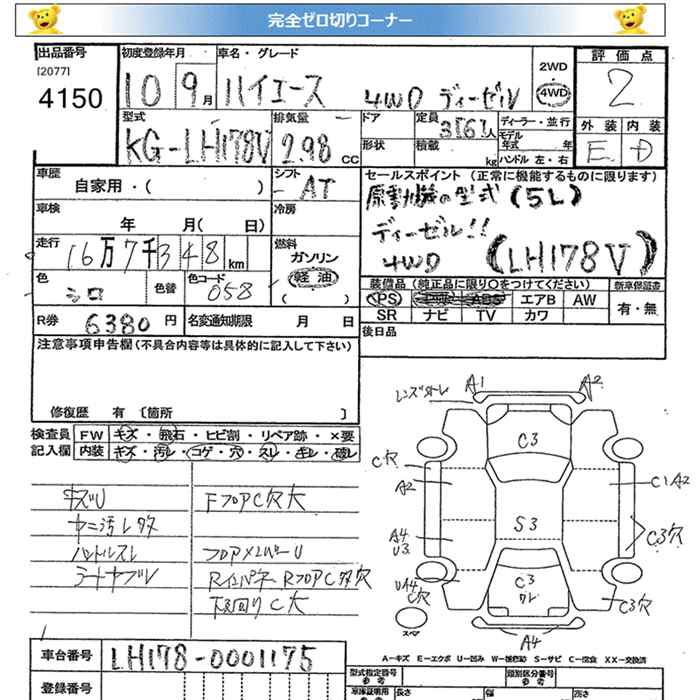 完全ゼロ切りコーナー
出品番号 初度登録年月 車名・グレード 評価点
[2077] 2WD
4150 10 9月 ハイエース 4WD ディーゼル 4WD 2
型式 排気量 ドア 定員 ディーラー・並行 外装 内装
KG-LH178V 2.98 CC 3[6]人 モデル年式 年 E D
形状 積載 kg ハンドル 左・右
車歴 シフト セールスポイント (正常に機能するものに限ります)
自家用・( ) AT 原動機の型式 (5L)
車検 冷房 ディーゼル!!
年 月( 日) 4WD (LH178V)
走行 燃料
16万7千348km ガソリン
軽油
( )
色 色替 色コード 装備品 (純正品に限り○をつけてください) 新車保証書
シロ 058 PS エアB AW 有・無
SR ナビ TV カワ
R券 6380円 名変通知期限 月 日 後日品
注意事項申告欄(不具合内容等は具体的に記入して下さい)
修復歴 有 [箇所 ]
検査員 FW キズ・飛石・ヒビ割・リペア跡・×要
記入欄 内装 キズ・汚レ・コゲ・穴・スレ・キレ・破レ
キズU FフロアC穴大
ヤニ汚レ
ハンドルスレ フロアメンバーU
シートヤブレ RインパネR RフロアC 穴
下回りC大
A1 A2
C3
C穴
A2 C1A2
S3
A4 C3穴
U3
UA4 C3
C穴 C3穴
スペア
A4
A-キズ E-エクボ U-凹み W-補修跡 S-サビ C-腐食 XX-交換済
車台番号 LH178-0001175
登録番号
型式指定番号 参考 類別区分番号 参考
車庫証明用 参考 長さ 幅 高さ